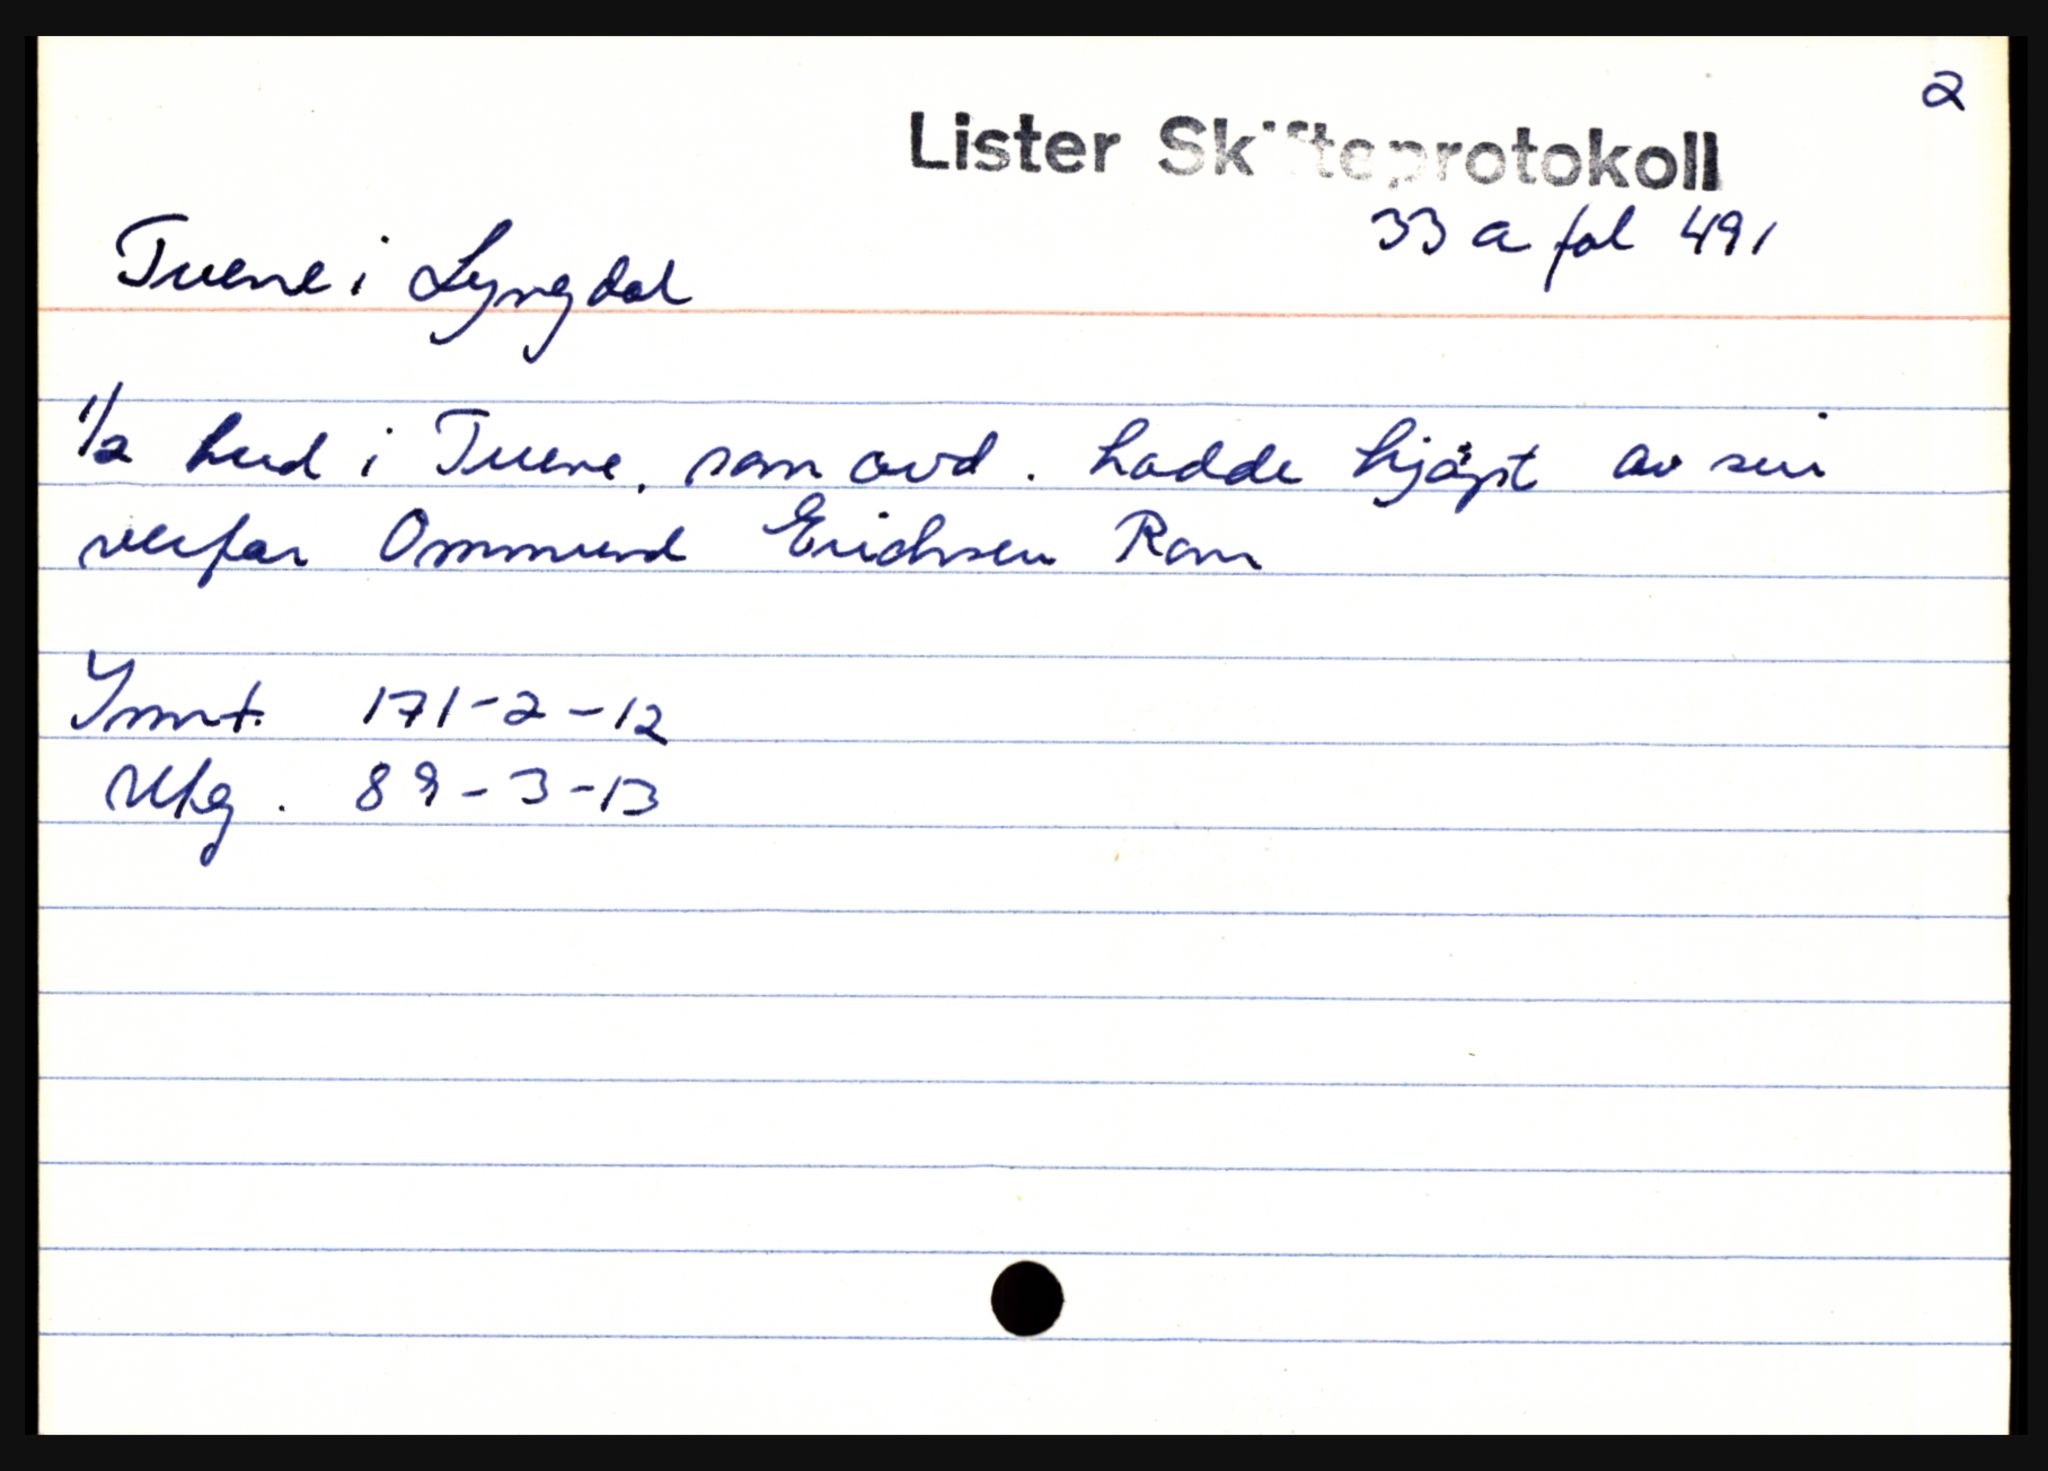 2
Lister Skifteprotokoll
33 a fol 491
Tuene i Lyngdal
1/2 hud i Tuene, som avd. hadde kjøpt av sin
verfar Ommund Erichsen Rom
Innt. 171-2-12
Utg. 89-3-13